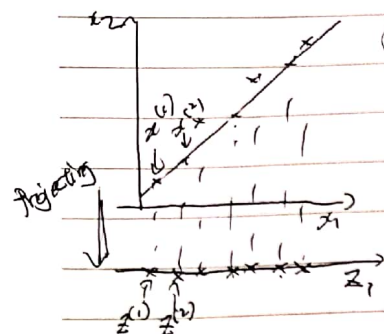 x₂
x⁽¹⁾ x⁽²⁾
Projecting
x₁
z₁
z⁽¹⁾ z⁽²⁾